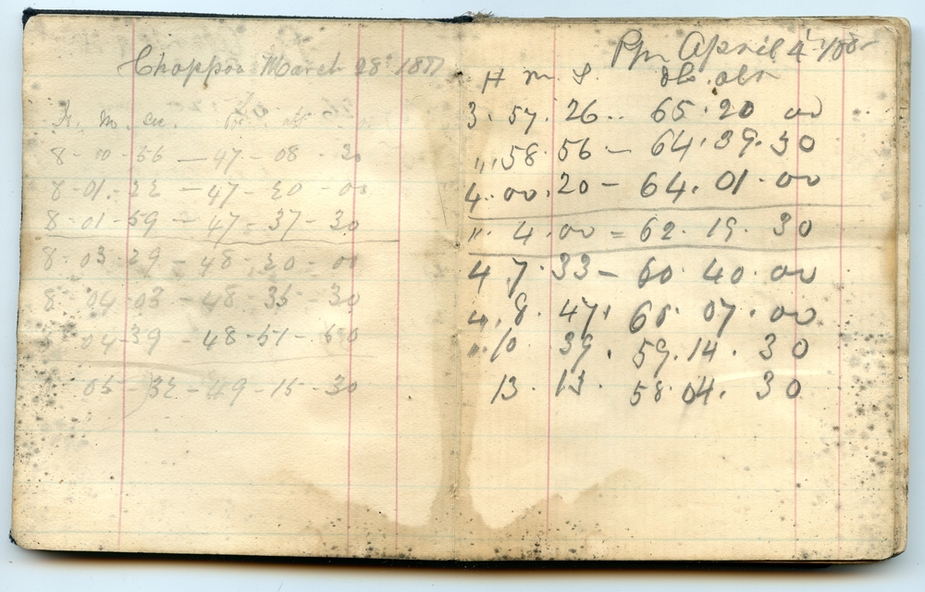 March 28
8 - 10 - 56 — 47 - 08 - 30
8 - 01 - 22 — 47 - 20 - 00
8 - 01 - 59 — 47 - 37 - 30
8 - 03 - 29 - 48 - 20 - 00
8 - 04 - 03 - 48 - 35 - 30
04 - 39 - 48 - 51 -
05 - 32 - 49 - 15 - 30
Pm April 4
H m S
3. 57. 26.. 65. 20 00
,, 58. 56 — 64. 39. 30
4. 00. 20 - 64. 01. 00
" 4. 00 = 62. 19. 30
4 7. 33 - 60. 40. 00
4. 8. 47. 07. 00
" 10 39. 59. 14. 30
13. 13. 58 04. 30